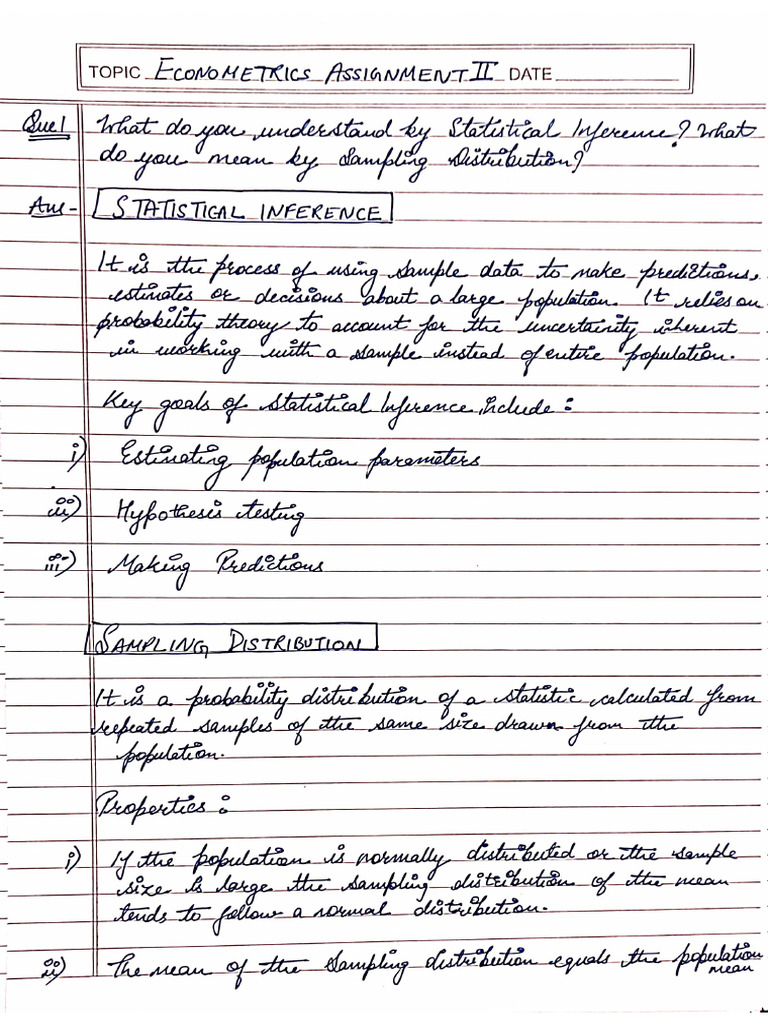 TOPIC ECONOMETRICS ASSIGNMENT II DATE
Que1 What do you understand by Statistical Inference? What
do you mean by Sampling Distribution?
Ans- STATISTICAL INFERENCE
It is the process of using sample data to make predictions,
estimates or decisions about a large population. It relies on
probability theory to account for the uncertainity inherent
in working with a sample instead of entire population.
Key goals of Statistical Inference include :
i) Estimating population parameters
ii) Hypothesis testing
iii) Making Predictions
SAMPLING DISTRIBUTION
It is a probability distribution of a statistic calculated from
repeated samples of the same size drawn from the
population.
Properties :
i) If the population is normally distributed or the sample
size is large the sampling distribution of the mean
tends to follow a normal distribution.
ii) The mean of the Sampling distribution equals the population
mean